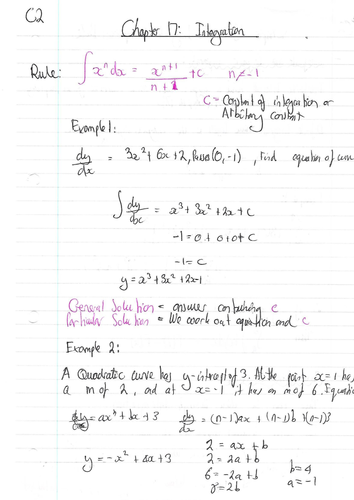 C2
Chapter 17: Integration
Rule: ∫ xⁿ dx = xⁿ⁺¹/n+1 + c   n ≠ -1
C = Constant of integration or
Arbitrary constant
Example 1:
dy/dx = 3x² + 6x + 2, Passes (0, -1), Find equation of curve
∫ dy/dx = x³ + 3x² + 2x + c
-1 = 0 + 0 + 0 + C
-1 = C
y = x³ + 3x² + 2x - 1
General Solution = answer containing c
Particular Solution = We work out equation and c
Example 2:
A Quadratic curve has y-intercept of 3. At the point x = 1 has
a m of 2, and at x = -1 it has an m of 6.
dy/dx = (n-1)ax + (n-1)b + (n-1)3
y = -x² + 4x + 3
2 = ax + b
2 = 2a + b
6 = -2a + b
8 = 2b
b = 4
a = -1